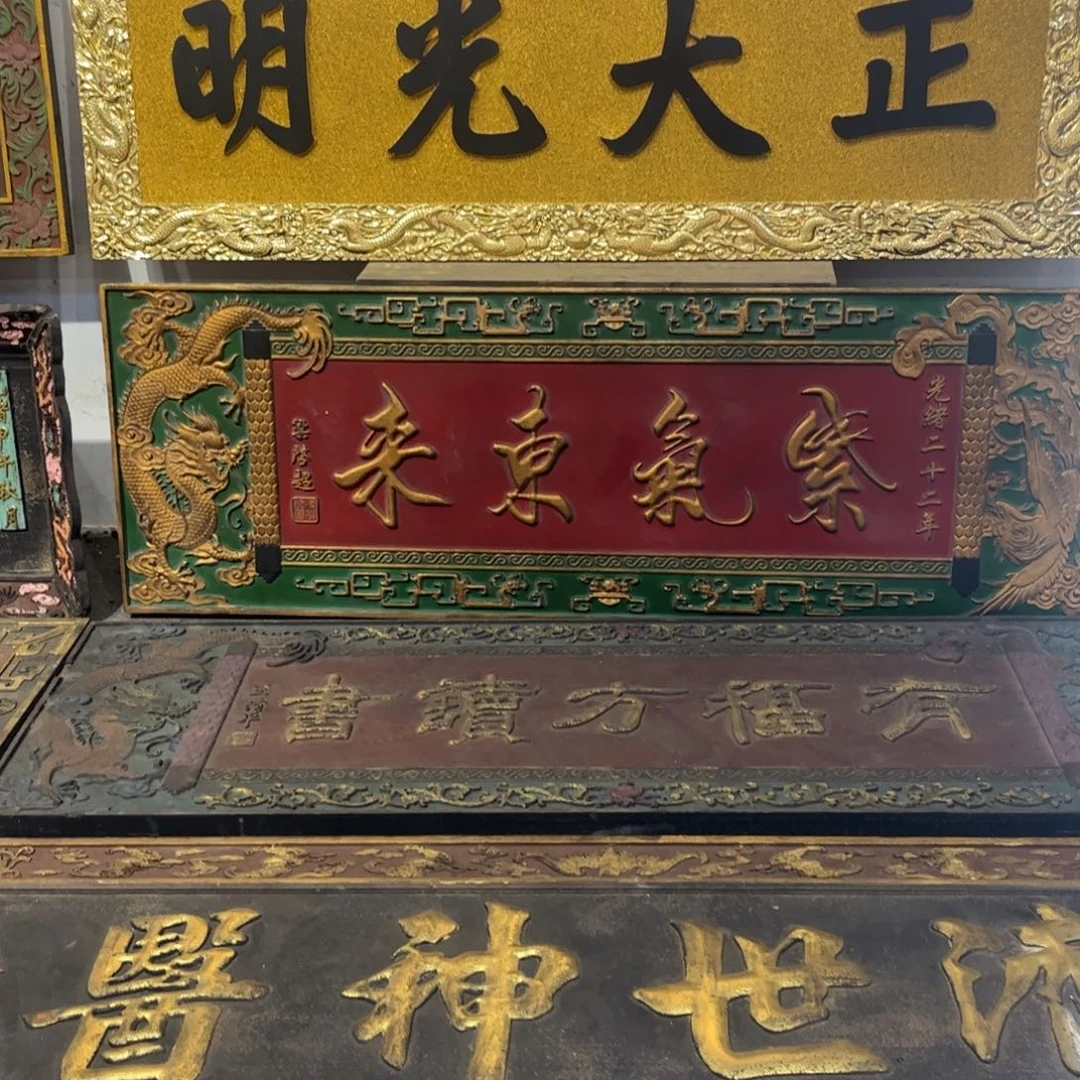 正大光明
光緒二十二年
紫氣東來
梁啓超
有福方讀書
濟世神醫